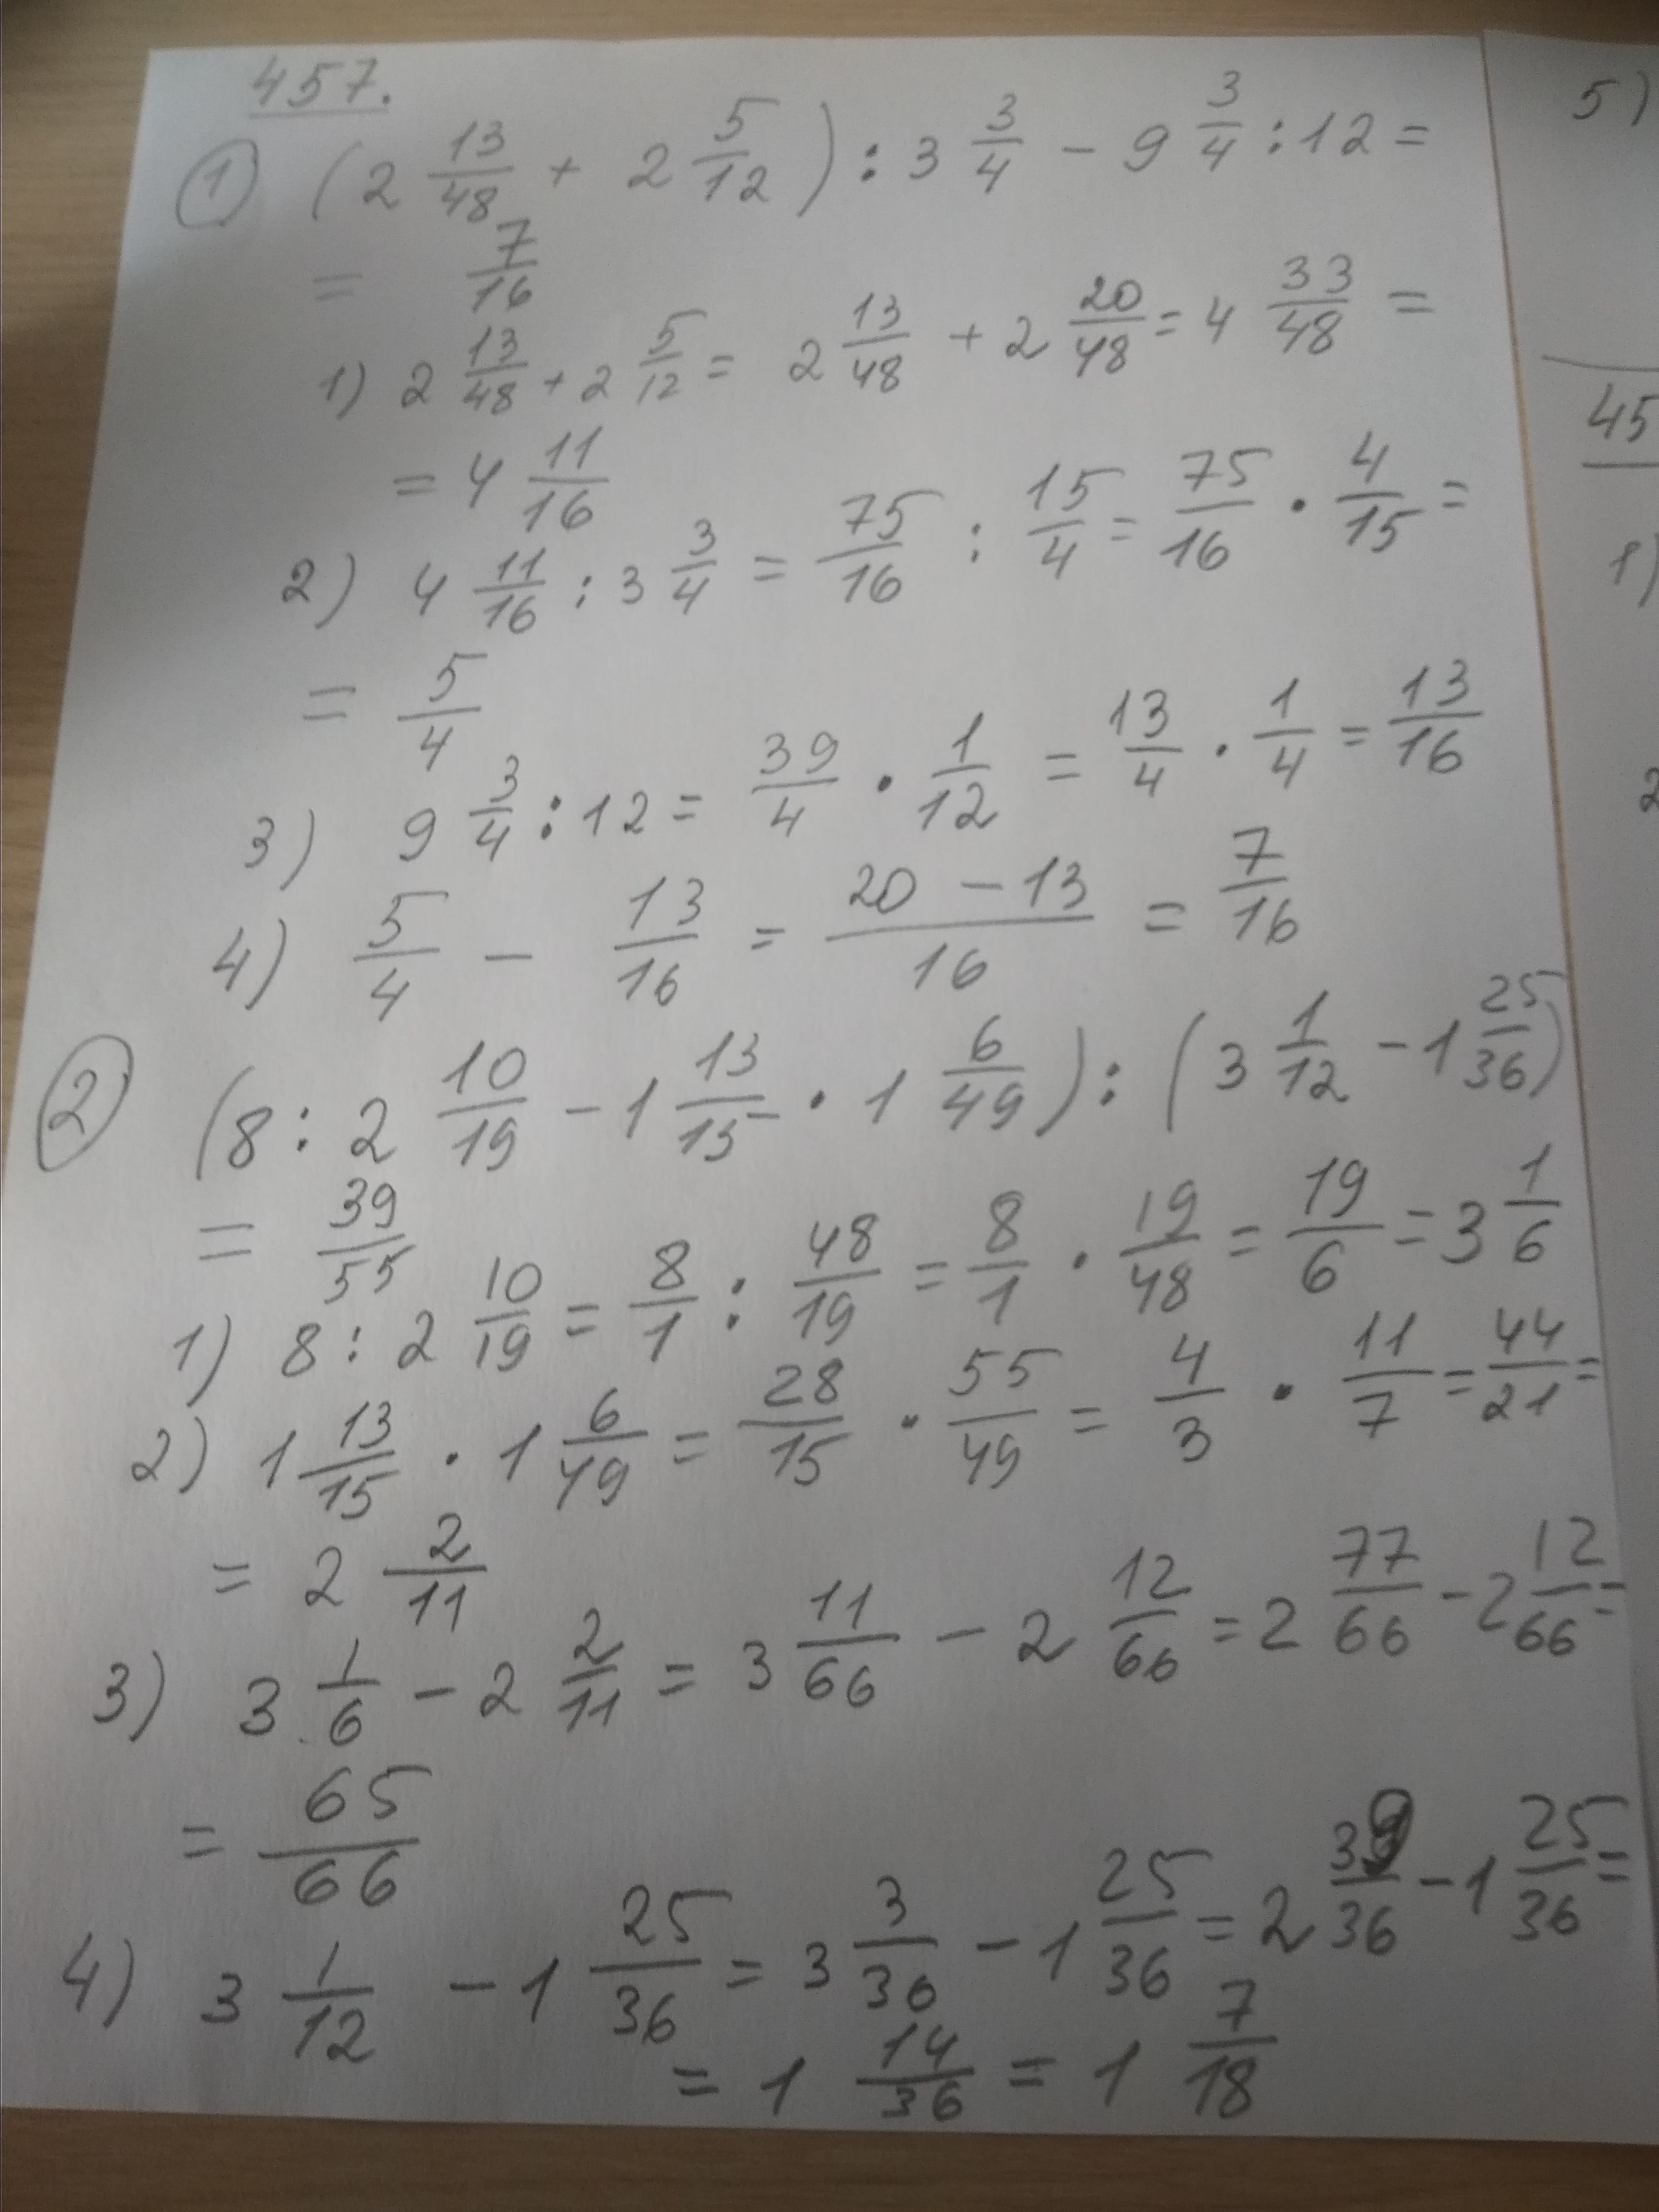 457.
1) (2 13/48 + 2 5/12) : 3 3/4 - 9 3/4 : 12 =
= 7/16
1) 2 13/48 + 2 5/12 = 2 13/48 + 2 20/48 = 4 33/48 =
= 4 11/16
2) 4 11/16 : 3 3/4 = 75/16 : 15/4 = 75/16 · 4/15 =
= 5/4
3) 9 3/4 : 12 = 39/4 · 1/12 = 13/4 · 1/4 = 13/16
4) 5/4 - 13/16 = (20 - 13)/16 = 7/16
2) (8 : 2 10/19 - 1 13/15 · 1 6/49) : (3 1/12 - 1 25/36)
= 39/55
1) 8 : 2 10/19 = 8/1 : 48/19 = 8/1 · 19/48 = 19/6 = 3 1/6
2) 1 13/15 · 1 6/49 = 28/15 · 55/49 = 4/3 · 11/7 = 44/21 =
= 2 2/11
3) 3 1/6 - 2 2/11 = 3 11/66 - 2 12/66 = 2 77/66 - 2 12/66 =
= 65/66
4) 3 1/12 - 1 25/36 = 3 3/36 - 1 25/36 = 2 39/36 - 1 25/36 =
= 1 14/36 = 1 7/18
5)
45
1)
2